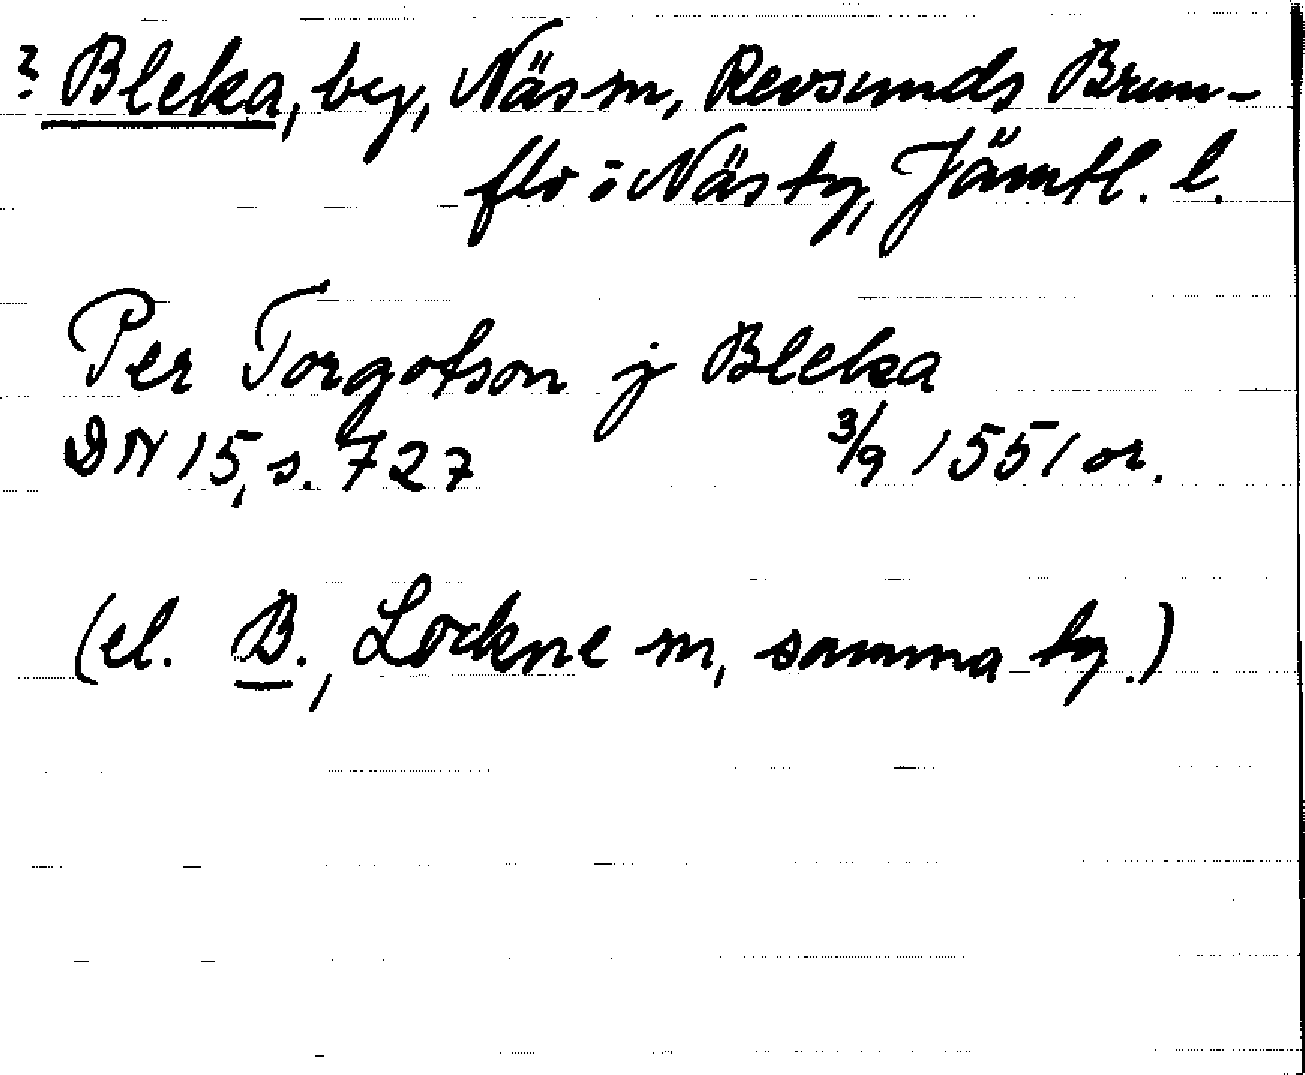 ? Bleka, by, Näs sn, Revsunds Brun-
flo o Näs tg, Jämtl. l.
Per Torgotson j Bleka
DN 15, s. 727 3/9 1551 or.
(el. B., Lockne sn, samma tg.)